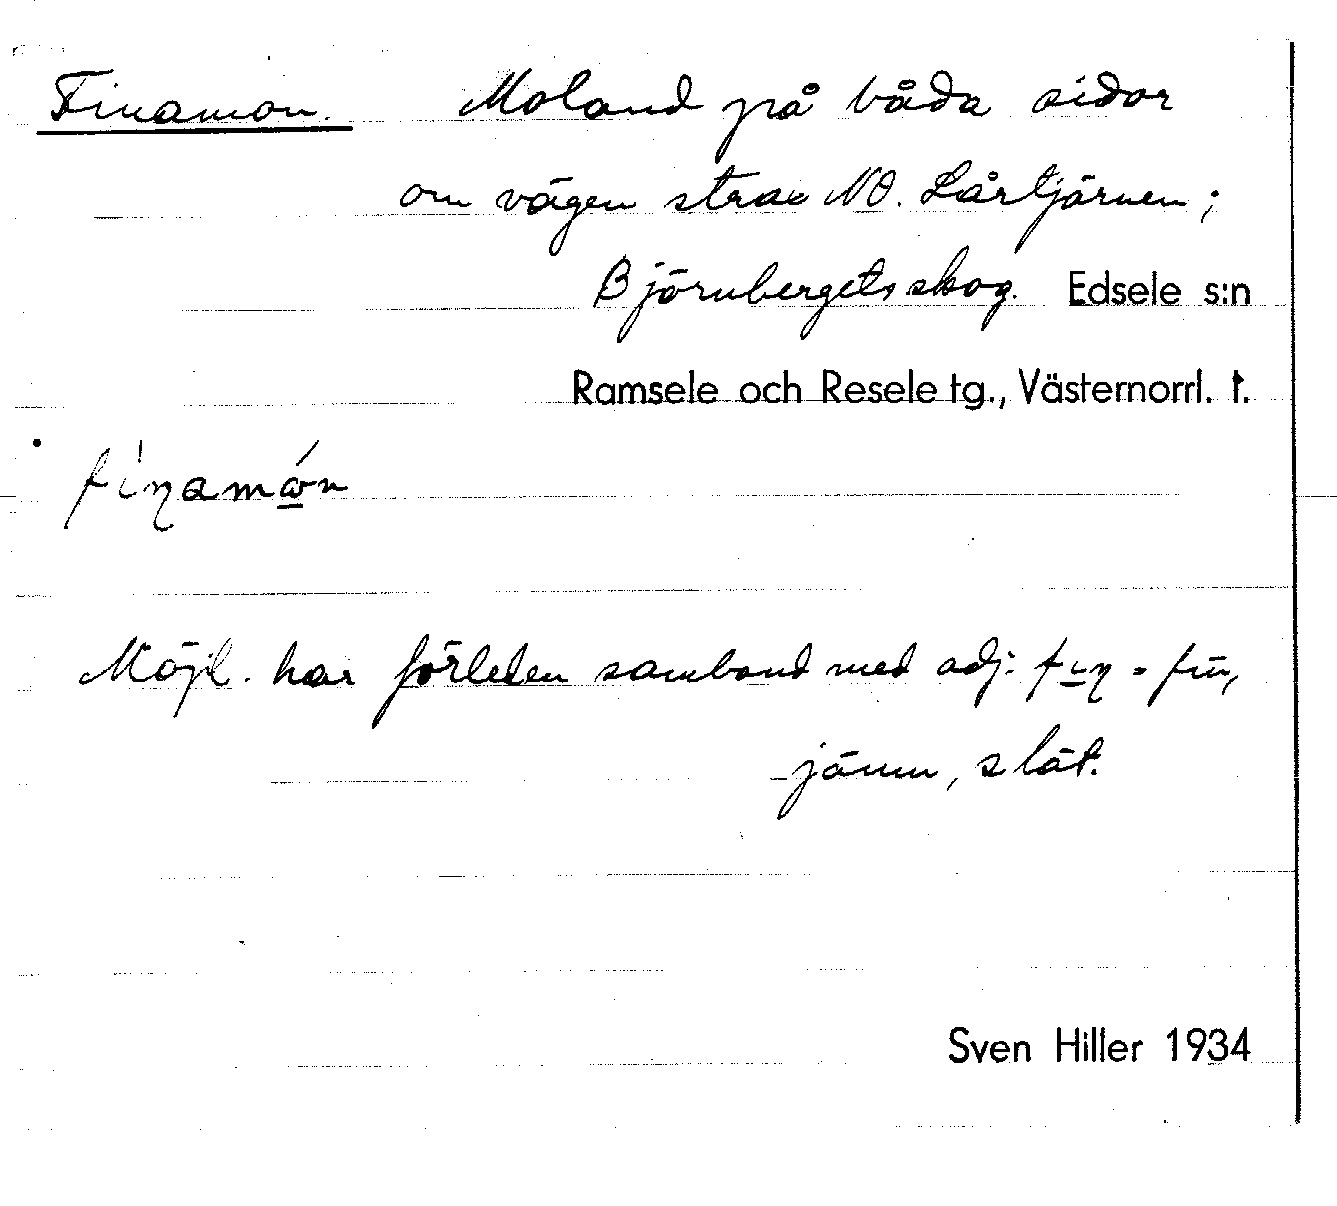 Finamon. Moland på båda sidor
om vägen strax NO. Lårtjärnen;
Björnbergets skog. Edsele s:n
Ramsele och Resele tg., Västernorrl. l.
Möjl. har förleden samband med adj: = fin,
jämn, slät.
Sven Hiller 1934